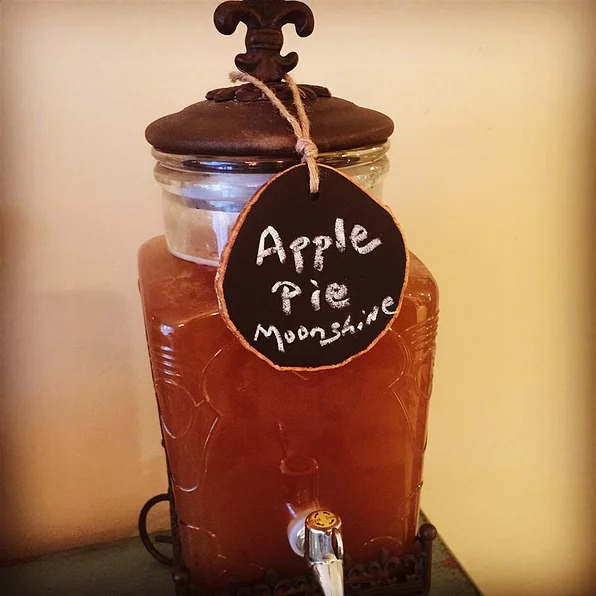 Apple
Pie
Moonshine